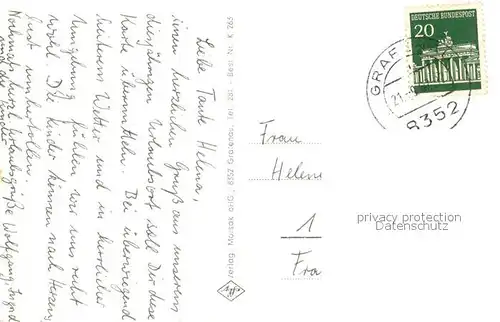 Liebe Tante Helena,
einen herzlichen Gruß aus unserem
diesjährigen Urlaubsort soll Dir diese
Karte übermitteln. Bei überwiegend
heiterem Wetter und in herrlicher
Umgebung fühlen wir uns recht
wohl. Die Kinder können nach Herzens-
lust umhertollen.
Nochmals herzl. Urlaubsgrüße Wolfgang, Ingrid
und Kinder
Verlag Moosak oHG. 8352 Grafenau, Tel. 281 - Best. Nr. K 265
Agfa
DEUTSCHE BUNDESPOST
20
GRAF
21.
8352
Frau
Helen
1
Fra
privacy protection
Datenschutz